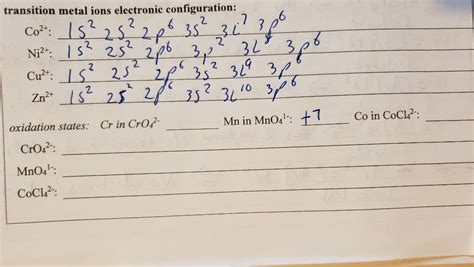 transition metal ions electronic configuration:
Co²⁺: 1s² 2s² 2p⁶ 3s² 3d⁷ 3p⁶
Ni²⁺: 1s² 2s² 2p6 3s² 3d⁸ 3p⁶
Cu²⁺: 1s² 2s² 2p⁶ 3s² 3d⁹ 3p⁶
Zn²⁺ 1s² 2s² 2p⁶ 3s² 3d¹⁰ 3p⁶
oxidation states: Cr in CrO₄²⁻ Mn in MnO₄¹⁻: +7 Co in CoCl₄²⁻:
CrO₄²⁻:
MnO₄¹⁻:
CoCl₄²⁻: